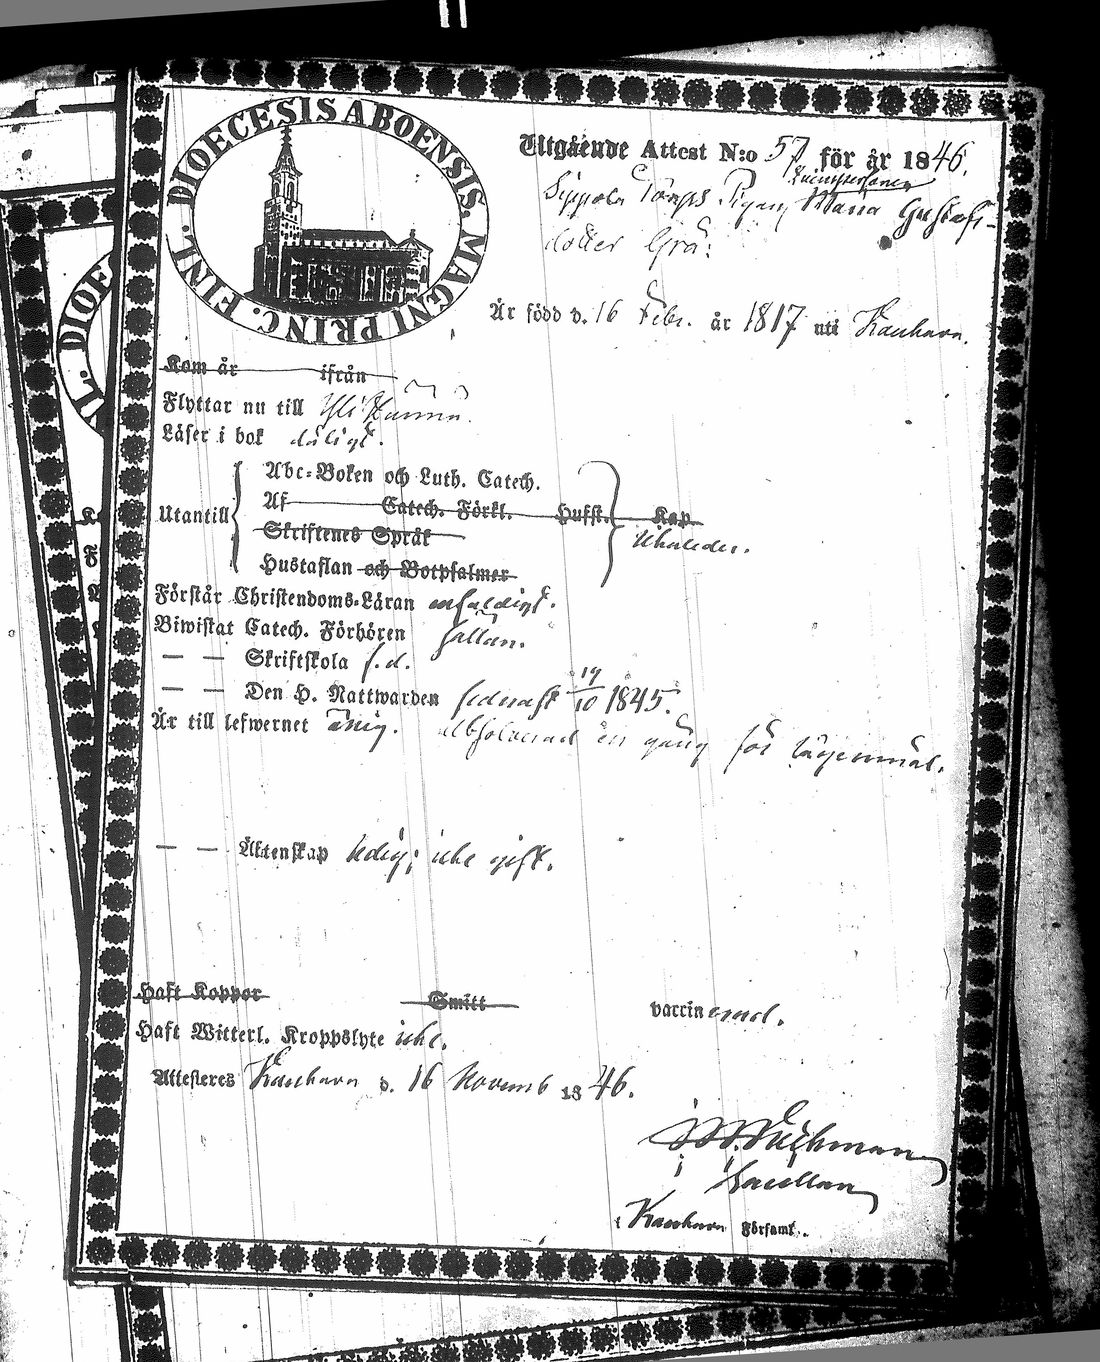 DIOECESIS ABOENSIS. MAGNI PRINC. FINL.
Utgående Attest N:o 57 för år 1846.
Qvinspersonen
Torps Pigan Maria Gustafs-
dotter Grå:
Är född d. 16 Febr. år 1817 uti Kauhava.
Kom år ifrån
Flyttar nu till Yli Kannu.
Läser i bok dåligt.
Abc-Boken och Luth. Catech.
Utantill Af Catech. Förkl. Hufst. Kap
Skriftenes Språk
Hustaflan och Botpsalmer
Förstår Christendoms-Läran enfaldigt.
Biwistat Catech. Förhören sällan.
— — Skriftskola f.d.
— — Den H. Nattwarden sednast 19/10 1845.
Är till lefwernet ärlig. Absolverad en gång för lägersmål.
— — Äktenskap ledig; icke gift.
Haft Koppor Smitt vaccinerad.
Haft Witterl. Kroppslyte icke.
Attesteras Kauhava d. 16 Novemb 1846.
Kauhava Församl.
DIOE